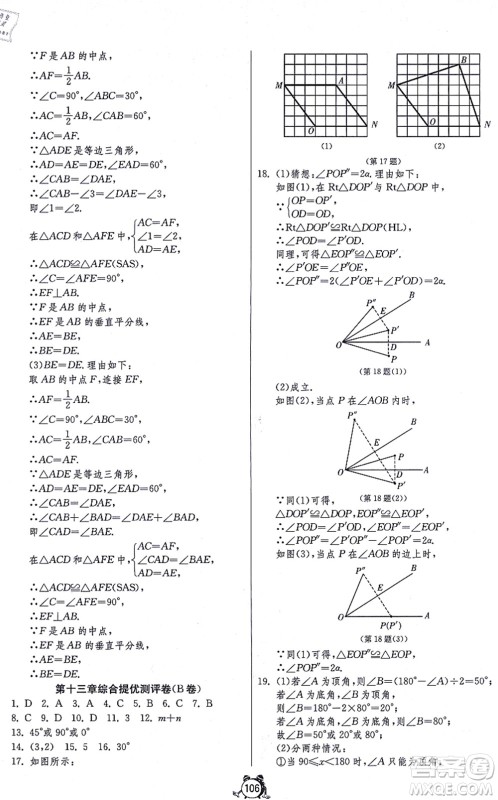 ∵F是AB的中点，
∴AF=1/2AB.
∵∠C=90°，∠ABC=30°，
∴AC=1/2AB，∠CAB=60°，
∴AC=AF.
∵△ADE是等边三角形，
∴AD=AE=DE，∠EAD=60°，
∴∠CAB=∠EAD，
∴∠CAB－∠3=∠DAE－∠3，
即∠1=∠2.
在△ACD和△AFE中，{AC=AF，∠1=∠2，AD=AE，
∴△ACD≌△AFE(SAS)，
∴∠C=∠AFE=90°，
∴EF⊥AB.
∵F是AB的中点，
∴EF是AB的垂直平分线，
∴BE=AE，
∴BE=DE.
(3)BE=DE.理由如下：
取AB的中点F，连接EF，
∴AF=1/2AB.
∵∠C=90°，∠ABC=30°，
∴AC=1/2AB，∠CAB=60°，
∴AC=AF.
∵△ADE是等边三角形，
∴AD=AE=DE，∠EAD=60°，
∴∠CAB=∠DAE，
∴∠CAB+∠BAD=∠DAE+∠BAD，
即∠CAD=∠BAE.
在△ACD和△AFE中，{AC=AF，∠CAD=∠BAE，AD=AE，
∴△ACD≌△AFE(SAS)，
∴∠C=∠AFE=90°，
∴EF⊥AB.
∵F是AB的中点，
∴EF是AB的垂直平分线，
∴BE=AE，
∴BE=DE.
第十三章综合提优测评卷(B卷)
1. D 2. A 3. A 4. D 5. C 6. D 7. B
8. C 9. D 10. D 11. 2 12. m+n
13. 45°或90°或0°
14. (3,2) 15. 5 16. 30°
17. 如图所示：
M A O N
(1)
M B O N
(2)
(第17题)
18. (1)猜想：∠POP″=2α.理由如下：
如图(1)，在Rt△DOP′与Rt△DOP中，
∵{OP=OP′，OD=OD，∴Rt△DOP′≌Rt△DOP(HL)，
∴∠POD=∠P′OD.
同理，可得∠P′OE=∠P″OE，
∴∠POP″=2(∠P′OE+∠P′OD)=2α.
P″ B E P′ O D A P
(第18题(1))
(2)成立.
如图(2)，当点P在∠AOB内时，
P″ B E P O D A P′
(第18题(2))
∵同(1)可得，
△DOP′≌△DOP，△EOP′≌△EOP″，
∴∠POP″=∠P′OP″－∠P′OP=2α.
如图(3)，当点P在∠AOB的边上时，
P″ B E O P(P′) A
(第18题(3))
∵同(1)可得，△EOP≌△EOP″，
∴∠POP″=2α.
19. (1)若∠A为顶角，则∠B=(180－∠A)÷2=50°；
若∠A为底角，∠B为顶角，
则∠B=180°－2×80°=20°；
若∠A为底角，∠B为底角，则∠B=80°.
故∠B=50°或20°或80°.
(2)分两种情况：
①当90≤x<180时，∠A只能为顶角，
106